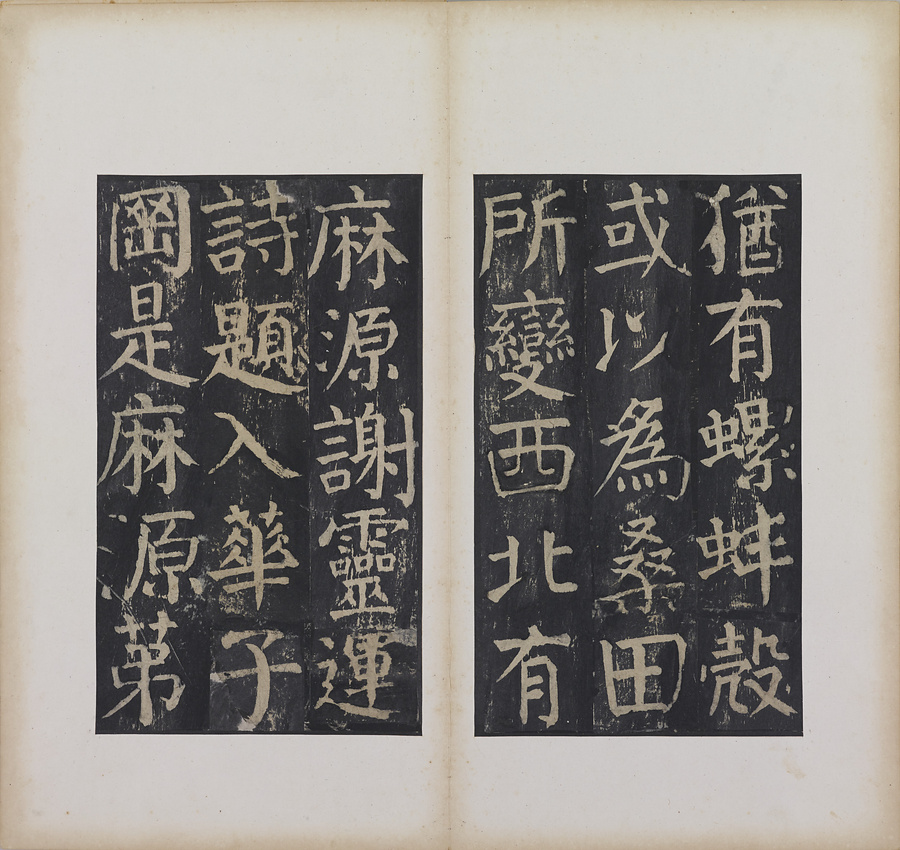 猶有螺蚌殼
或以為桑田
所變西北有
麻源謝靈運
詩題入華子
岡是麻源苐